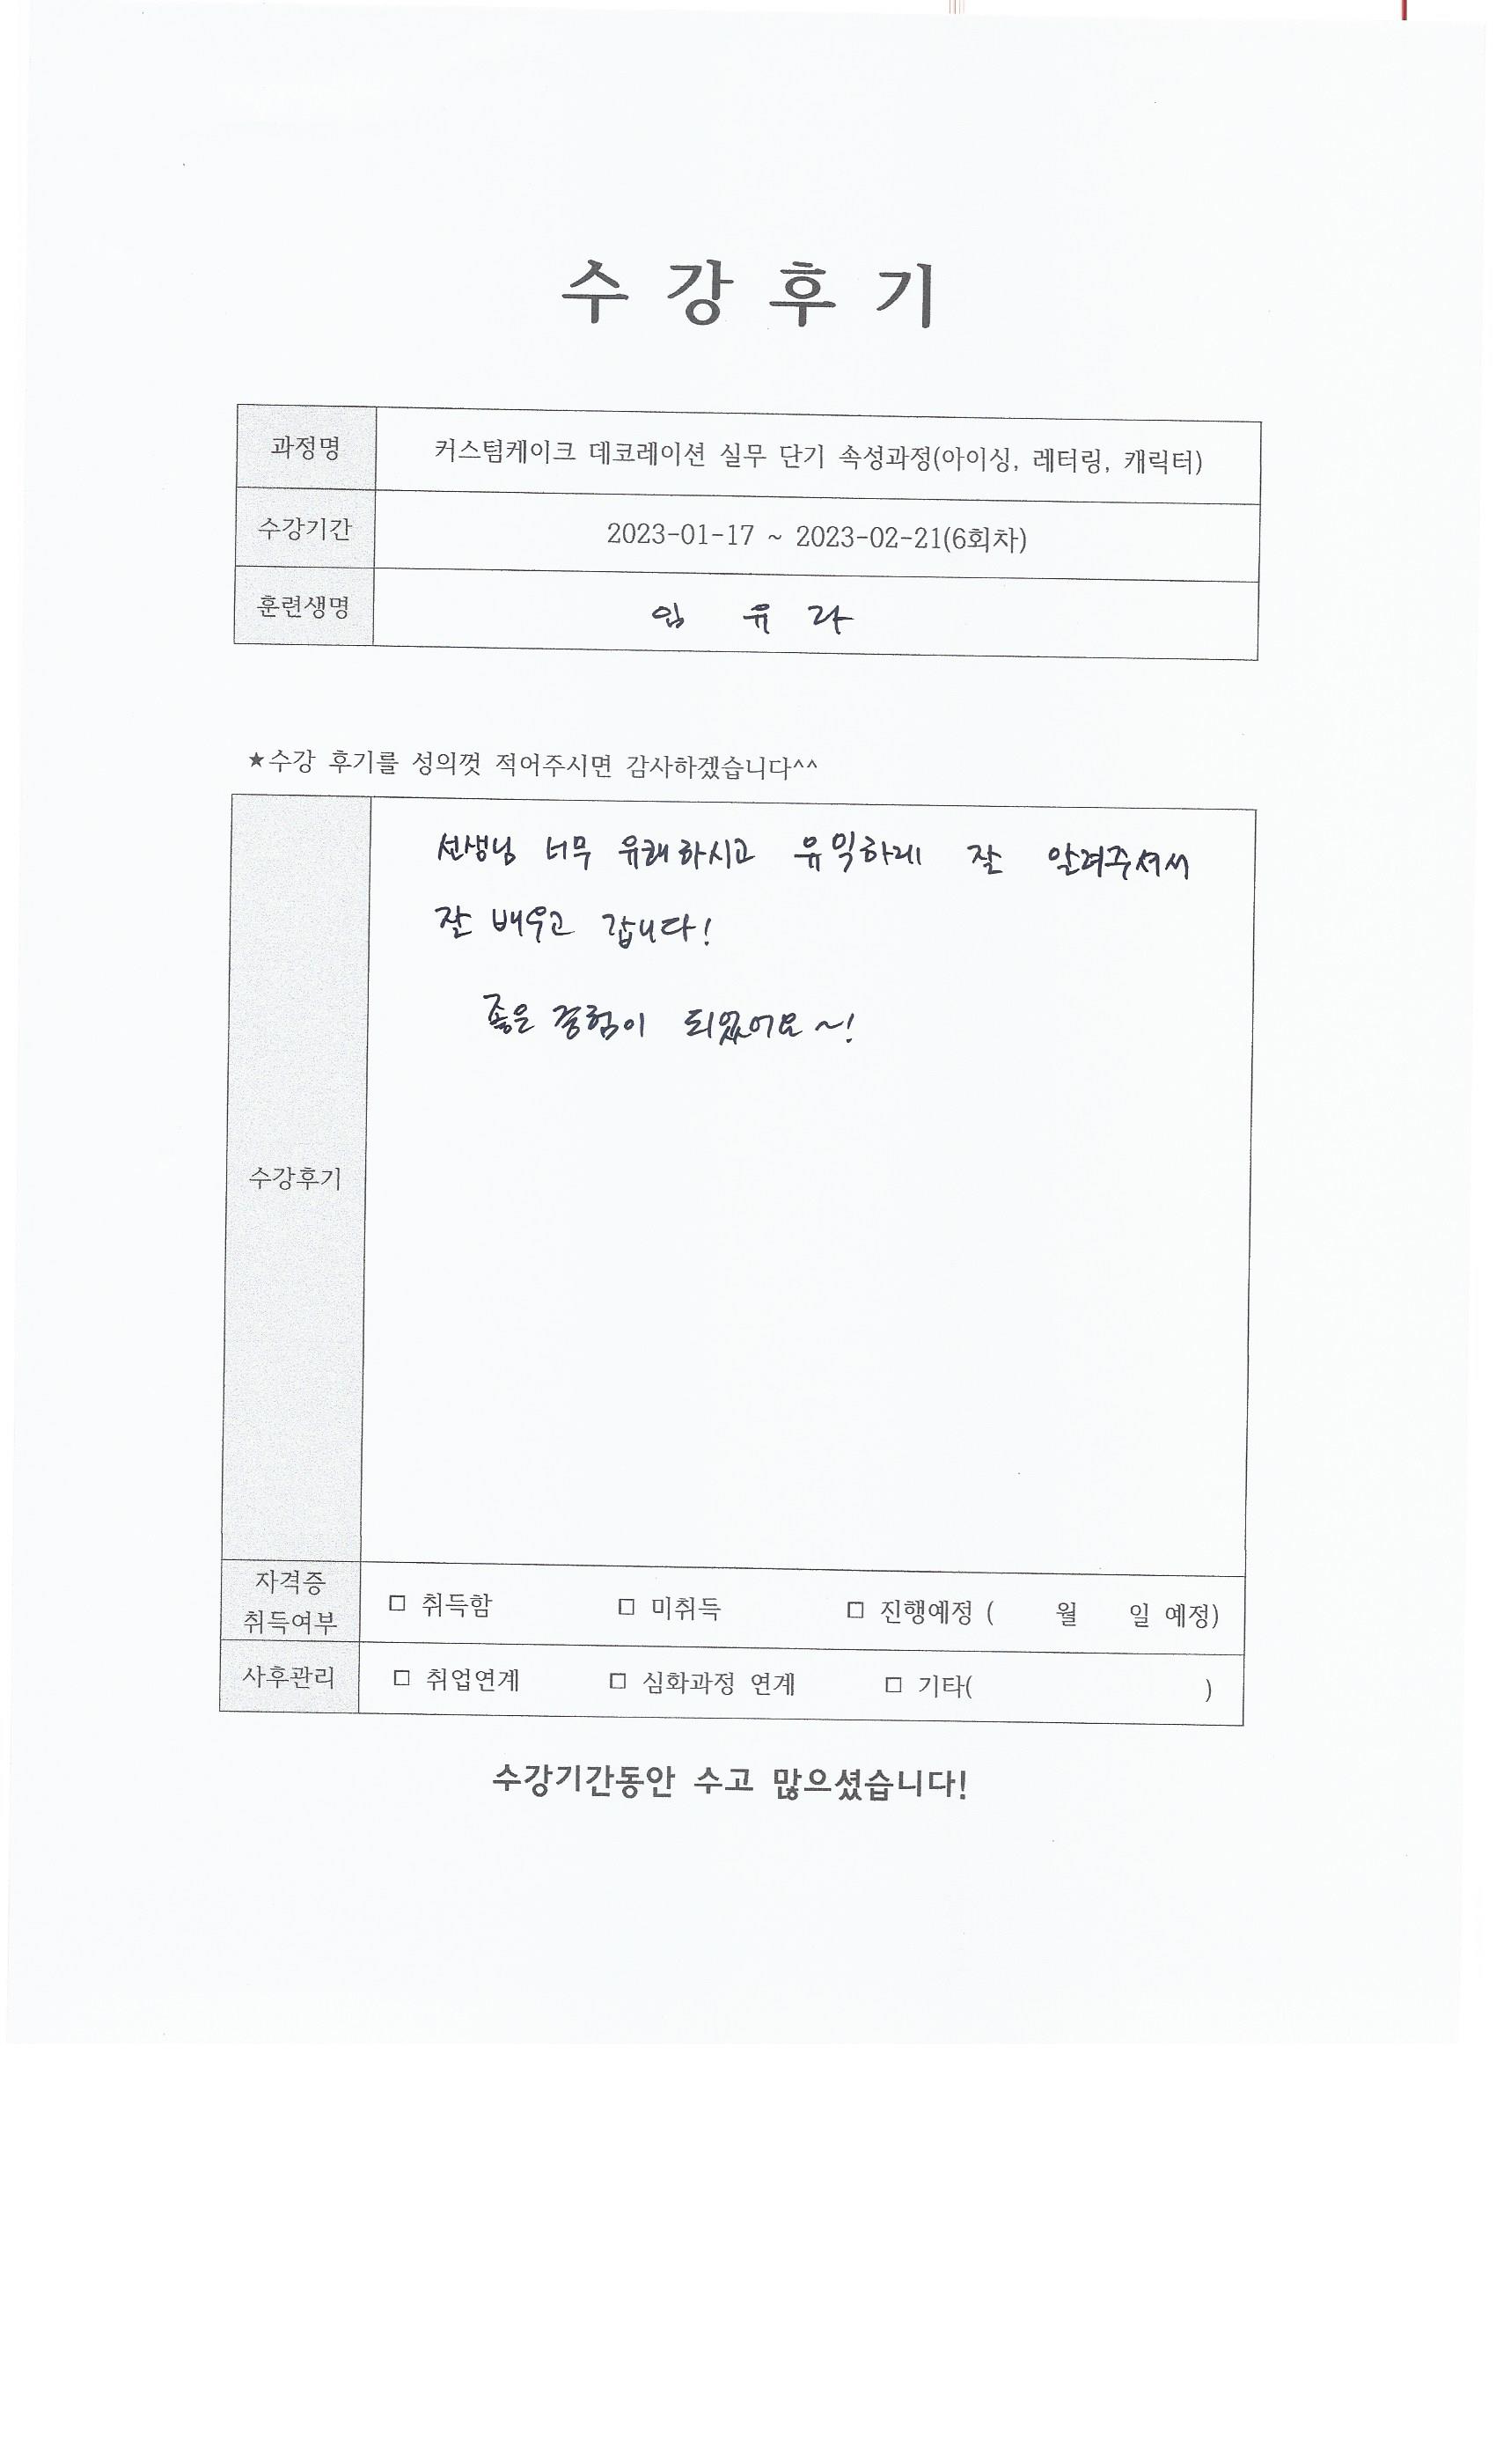 수강후기
과정명 커스텀케이크 데코레이션 실무 단기 속성과정(아이싱, 레터링, 캐릭터)
수강기간 2023-01-17 ~ 2023-02-21(6회차)
훈련생명 임 유 라
★수강 후기를 성의껏 적어주시면 감사하겠습니다^^
선생님 너무 유쾌하시고 유익하게 잘 알려주셔서
잘 배우고 갑니다!
좋은 경험이 되었어요~!
수강후기
자격증
취득여부
□ 취득함 □ 미취득 □ 진행예정 ( 월 일 예정)
사후관리 □ 취업연계 □ 심화과정 연계 □ 기타( )
수강기간동안 수고 많으셨습니다!